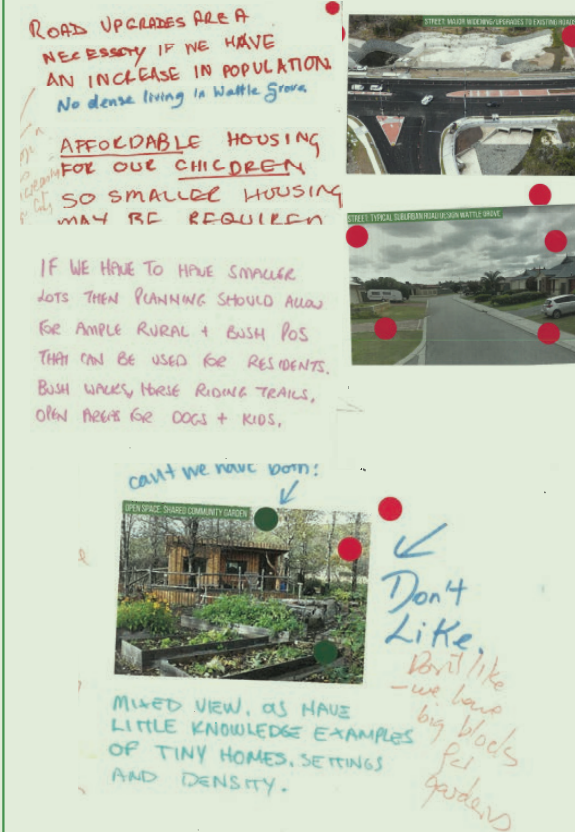 ROAD UPGRADES ARE A
NECESSITY IF WE HAVE
AN INCREASE IN POPULATION
No dense living in Wattle Grove
AFFORDABLE HOUSING
FOR OUR CHILDREN
SO SMALLER HOUSING
MAY BE REQUIRED
STREET: MAJOR WIDENING/UPGRADES TO EXISTING ROADS
STREET: TYPICAL SUBURBAN ROAD DESIGN WATTLE GROVE
IF WE HAVE TO HAVE SMALLER
LOTS THEN PLANNING SHOULD ALLOW
FOR AMPLE RURAL + BUSH POS
THAT CAN BE USED FOR RESIDENTS.
BUSH WALKS, HORSE RIDING TRAILS,
OPEN AREAS FOR DOGS + KIDS.
can't we have both?
OPEN SPACE: SHARED COMMUNITY GARDEN
Don't
Like.
Don't like
- we have
big blocks
for
gardens
MIXED VIEW, AS HAVE
LITTLE KNOWLEDGE EXAMPLES
OF TINY HOMES, SETTINGS
AND DENSITY.